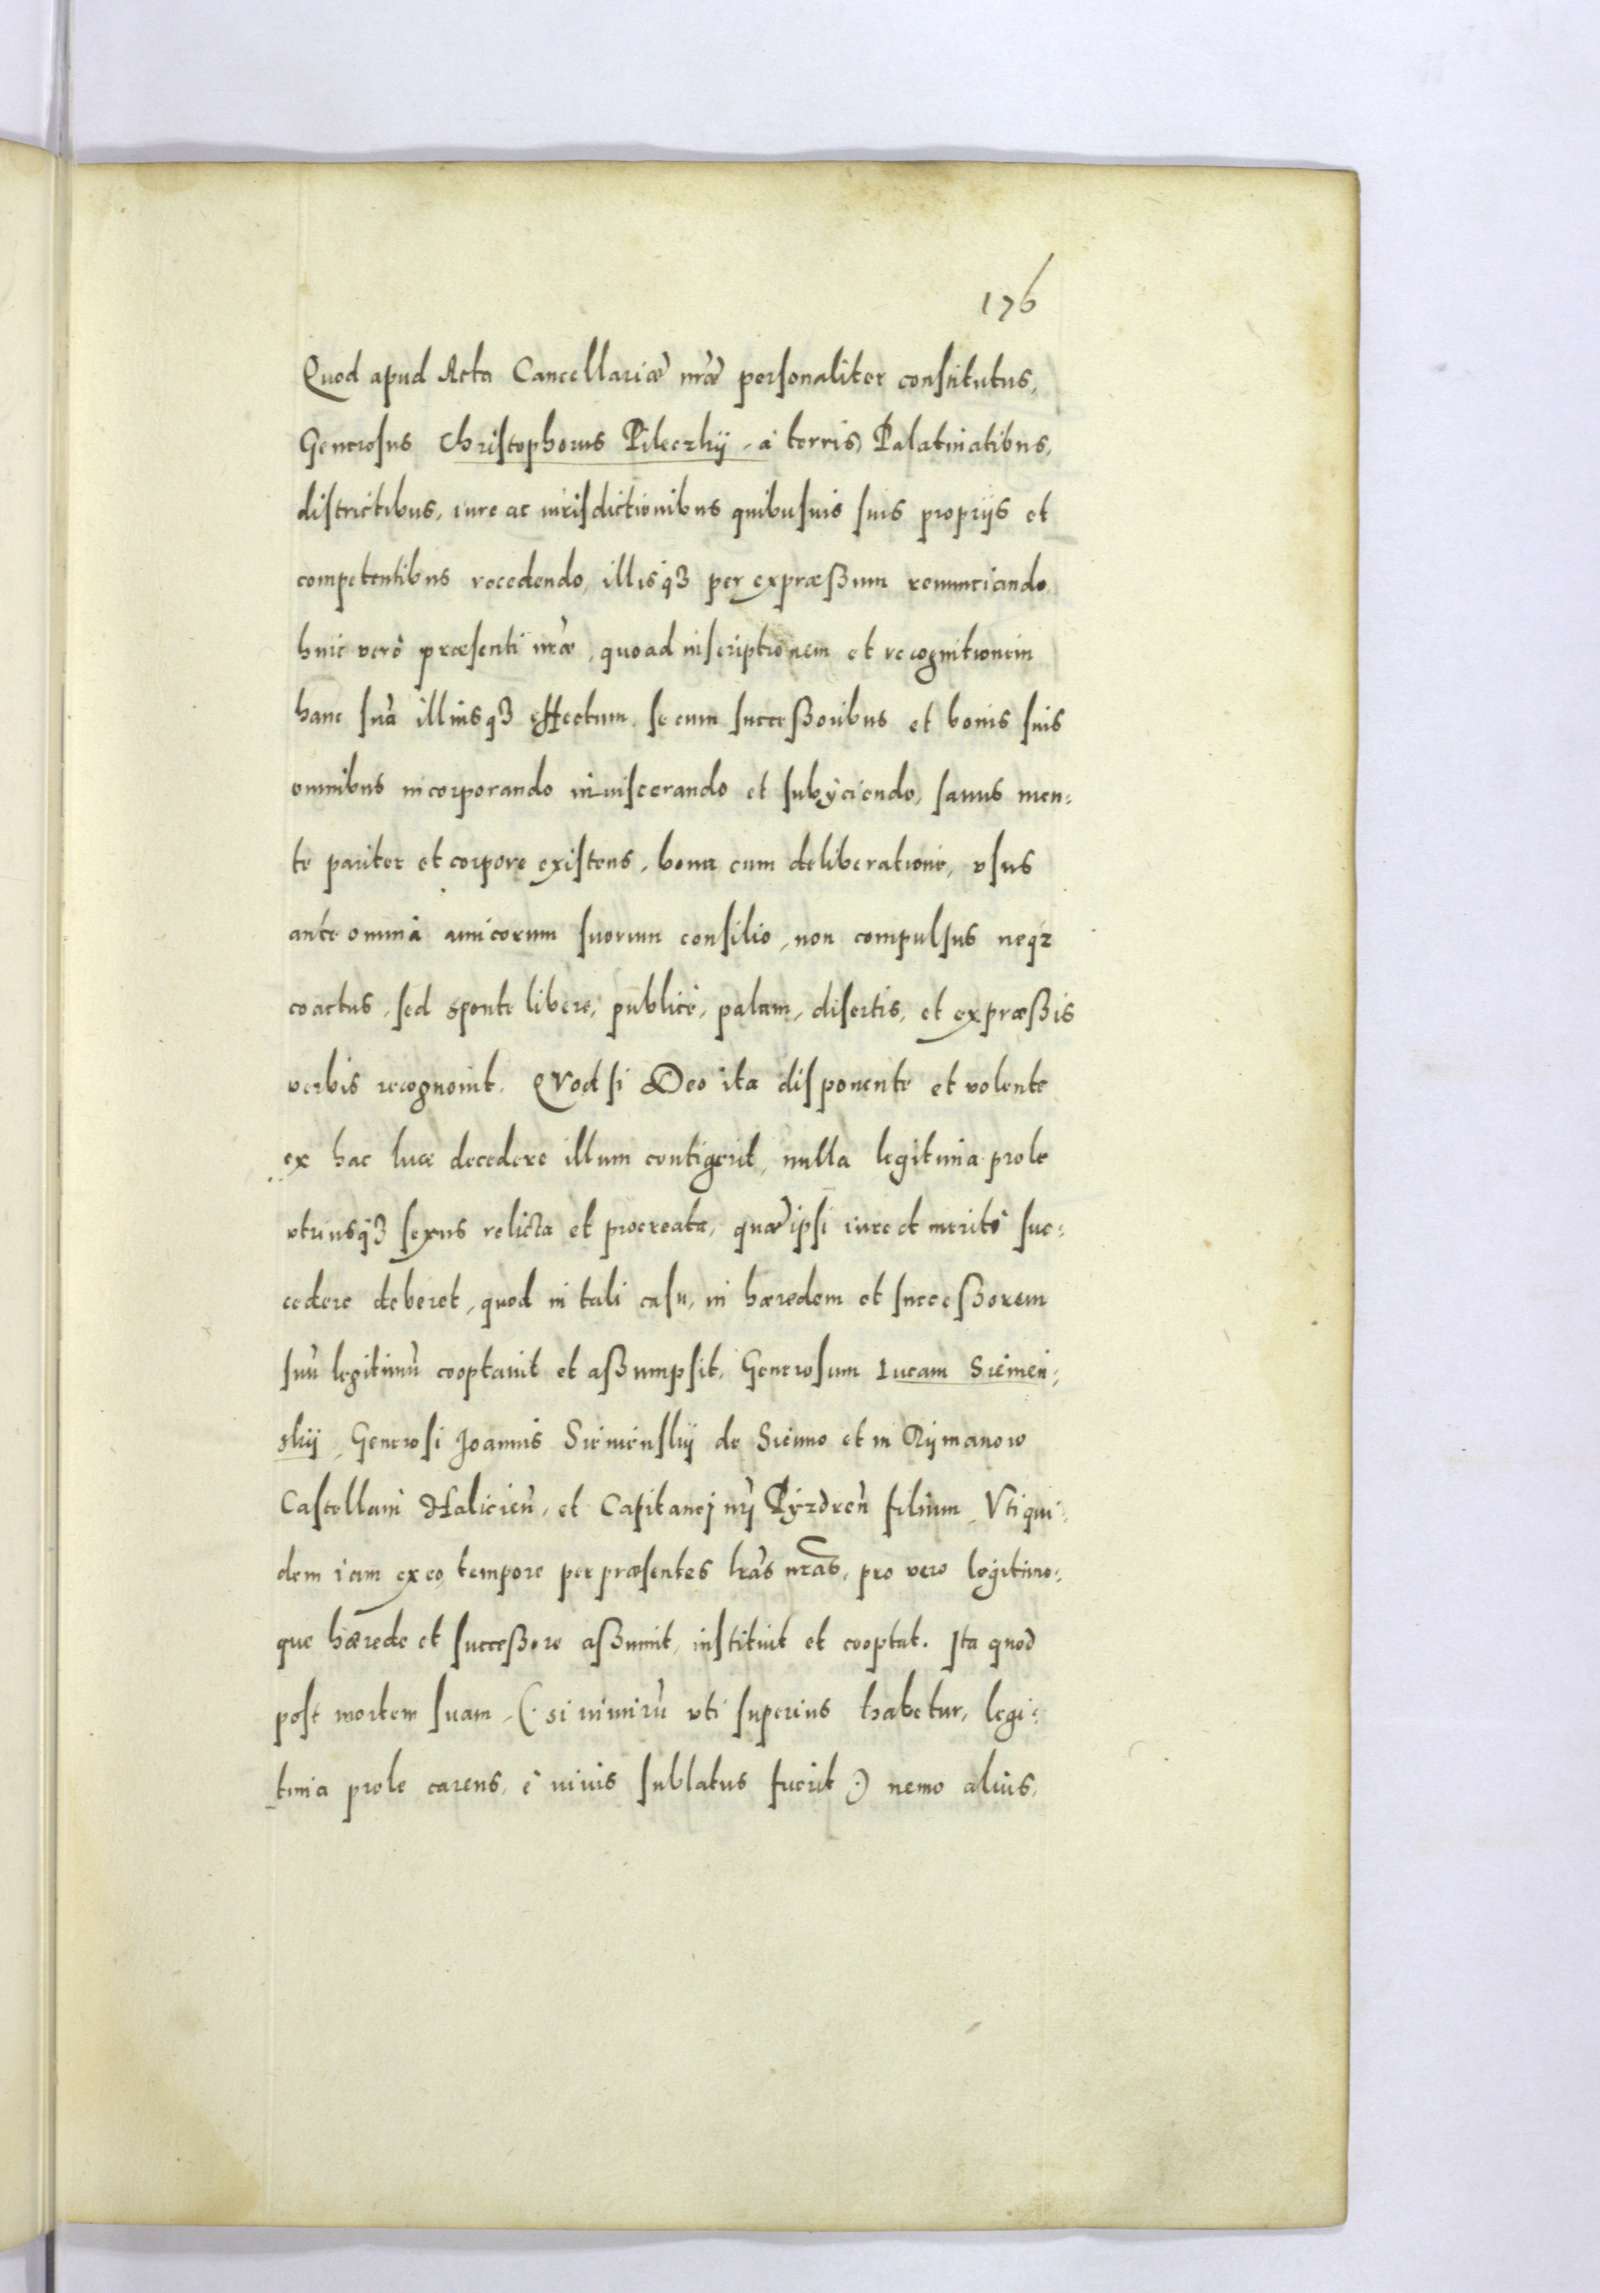 176
Quod apud Acta Cancellariæ nræ personaliter constitutus,
Generosus Christophorus Pileczkij, à terris, Palatinatibus,
districtibus, iure ac iurisdictionibus quibusuis suis proprijs et
competentibus recedendo, illisq3 per expræßum renunciando
huic verò præsenti nræ, quoad inscriptionem et recognitionem
hanc suã illiusq3 effectum, se cum succeßoribus et bonis suis
omnibus incorporando inuiscerando et subÿciendo, sanus men:
te pariter et corpore existens, bona cum deliberatione, vsus
ante omnia amicorum suorum consilio, non compulsus neq2
coactus, sed sponte libere, publicè, palam, disertis, et expræßis
verbis recognouit. QVod si Deo ita disponente et volente
ex hac luce decedere illum contigerit, nulla legitima prole
vtriusq3 sexus relicta et procreata, quæ ipsi iure et meritò suc:
cedere deberet, quod in tali casu, in hæredem et succeßorem
suũ legitimũ cooptauit et aßumpsit, Generosum Lucam Siemien:
skij, Generosi Joannis Siemienskij de Sienno et in Rijmanow
Castellani Halicieñ, et Capitanej nrj Pÿzdreñ filium. Vti qui:
dem iam ex eo tempore per præsentes lrãs nrãs, pro vero legitimo:
que hærede et succeßore aßumit, instituit et cooptat. Ita quod
post mortem suam, (: si nimirũ vti superius habetur, legi:
tima prole carens, è viuis sublatus fuerit :) nemo alius,